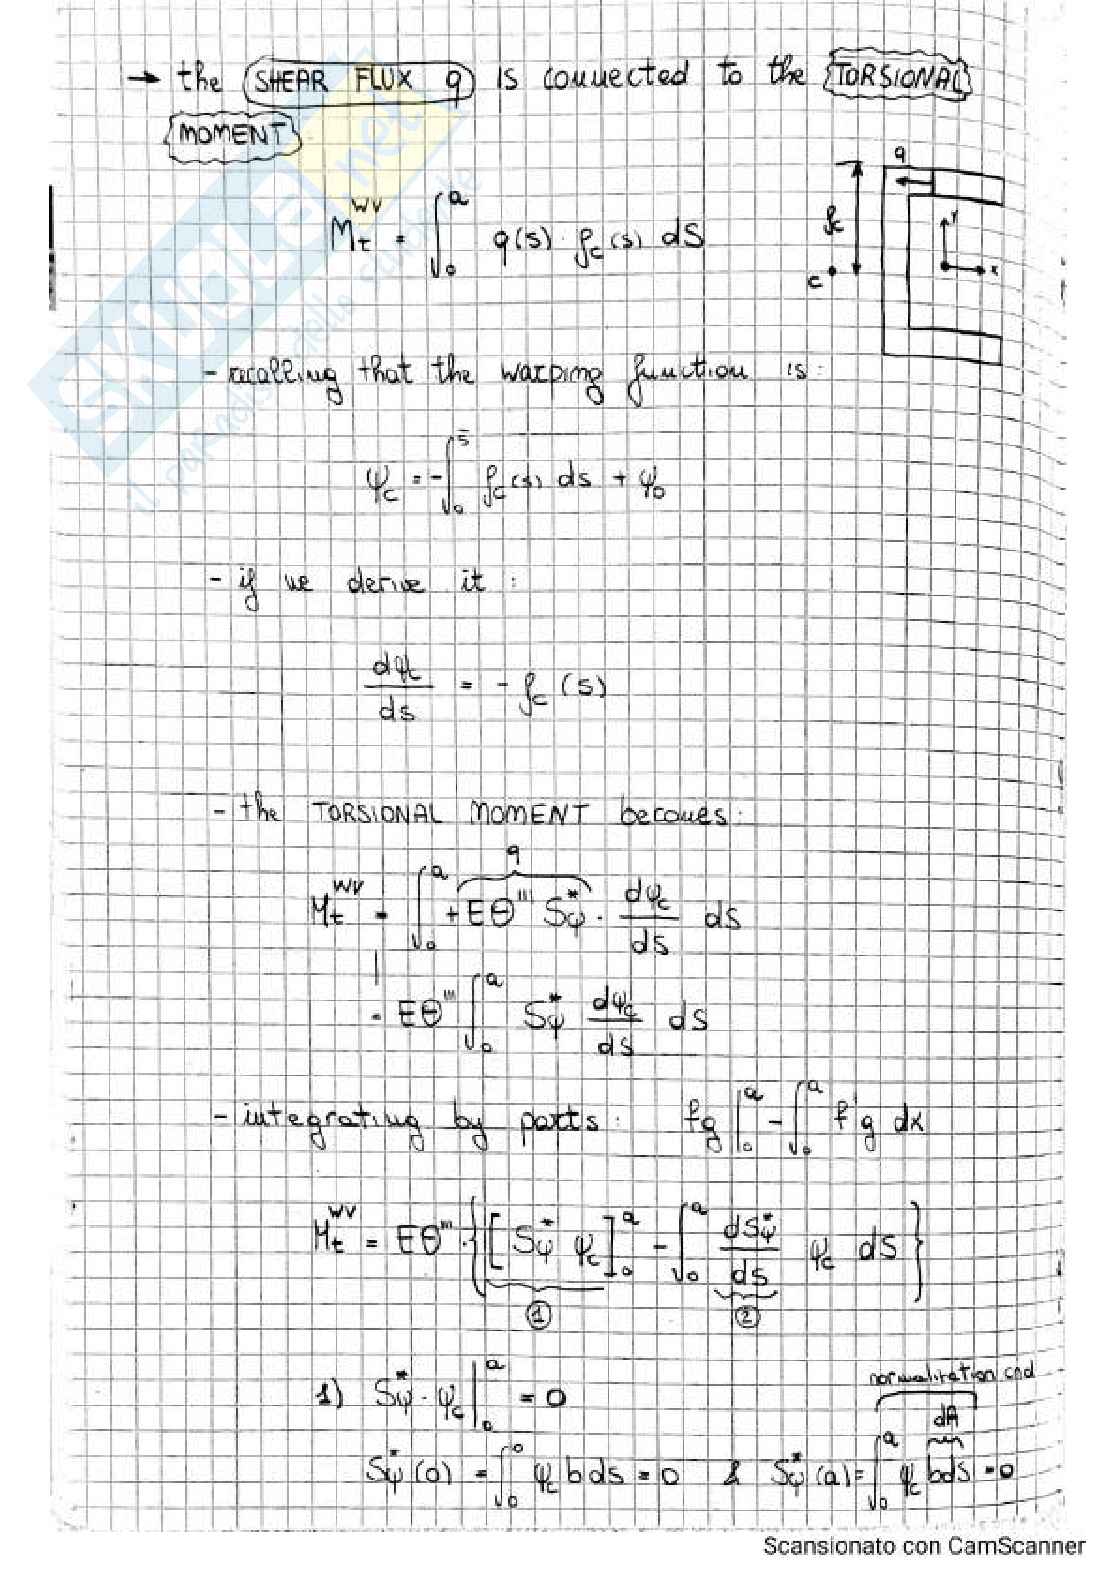 → the SHEAR FLUX q is connected to the TORSIONAL
MOMENT
M_t^{WV} = ∫_0^a q(s) · ρ_c(s) ds
q
ρ_c
c
Y
x
- recalling that the warping function is:
ψ_c = -∫_0^{s̄} ρ_c(s) ds + ψ_0
- if we derive it:
dψ_c/ds = - ρ_c (s)
- the TORSIONAL MOMENT becomes:
q
M_t^{WV} = ∫_0^a +EΘ''' S_ψ^* · dψ_c/ds ds
= EΘ''' ∫_0^a S_ψ^* dψ_c/ds ds
- integrating by parts: fg|_0^a - ∫_0^a f'g dx
M_t^{WV} = EΘ''' · {[S_ψ^* ψ_c]_0^a - ∫_0^a dS_ψ^*/ds ψ_c ds}
① ②
normalization cnd
1) S_ψ^* · ψ_c|_0^a = 0
dA
S_ψ^*(0) = ∫_0^0 ψ_c b ds = 0 & S_ψ^*(a) = ∫_0^a ψ_c b ds = 0
skuola.net
il paradiso dello studente
Scansionato con CamScanner